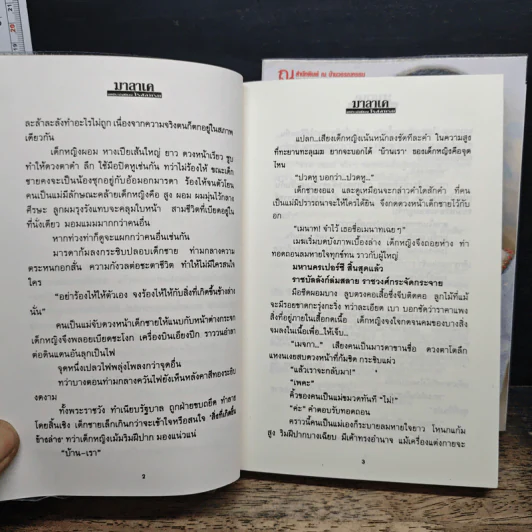 มาลาเค
ละล้าละลังทำอะไรไม่ถูก เนื่องจากความจริงตนก็ตกอยู่ในสภาพ
เดียวกัน
เด็กหญิง ผอม หางเปียเส้นใหญ่ ยาว ดวงหน้าเรียว ซูบ
ทำให้ดวงตาดำ ลึก ใช้มือปิดหูเช่นกัน ทว่าไม่ร้องไห้ ขณะเด็ก
ชายคงจะเป็นน้องซุกอยู่กับอ้อมอกมารดา ร้องไห้จนตัวโยน
คนเป็นแม่มีลักษณะคล้ายเด็กหญิงคือ สูง ผอม ผมมุ่นไว้กลาง
ศีรษะ ลูกผมรุงรังแทบจะคลุมใบหน้า สามชีวิตที่เบียดอยู่ใน
ที่นั่งเดียว มอมแมมมากกว่าคนอื่น
หากท่วงท่าก็ดูจะแผกกว่าคนอื่นเช่นกัน
มารดาก้มลงกระซิบปลอบเด็กชาย ท่ามกลางความ
ตระหนกอกสั่น ความกังวลต่อชะตาชีวิต ทำให้ไม่มีใครสนใจ
ใคร
"อย่าร้องไห้ให้ตัวเอง จงร้องไห้ให้กับสิ่งที่เกิดขึ้นข้างล่าง
นั่น"
คนเป็นแม่จับดวงหน้าเด็กชายให้แนบกับหน้าต่างกระจก
เด็กหญิงจึงพลอยเบียดชะโงก เครื่องบินเอียงปีก ราววนอำลา
ต่อดินแดนอันลุกเป็นไฟ
จุดหนึ่งเปลวไฟพลุ่งโพลงกว่าจุดอื่น
ทว่าบางตอนท่ามกลางควันไฟยังเห็นหลังคาสีทองระยับ
งดงาม
ทั้งพระราชวัง ทำเนียบรัฐบาล ถูกฝ่ายขบถยึด ทำลาย
โดยสิ้นเชิง เด็กชายเล็กเกินกว่าจะเข้าใจหรือสนใจ 'สิ่งที่เกิดขึ้น
ข้างล่าง' ทว่าเด็กหญิงเม้มริมฝีปาก มองแน่วแน่
"บ้าน-เรา"
๒
มาลาเค
แปลก...เสียงเด็กหญิงเน้นหนักลงชัดทีละคำ ในความสูง
ที่ทะยานทะลุเมฆ ยากจะบอกได้ 'บ้านเรา' ของเด็กหญิงคือจุด
ไหน
"ปวดหู บอกว่า...ปวดหู..."
เด็กชายงอแง และดูเหมือนจะกล่าวคำใดสักคำ ที่คน
เป็นแม่ไม่ปรารถนาจะให้ใครได้ยิน จึงกดดวงหน้าเด็กชายไว้กับ
อก
"เมนาท! จำไว้ เธอชื่อเมนาทเฉย ๆ"
เมฆเริ่มบดบังภาพเบื้องล่าง เด็กหญิงจึงถอยห่าง ท่า
ทอดถอนลมหายใจทุกข์ทน ราวกับผู้ใหญ่
มหานครเปอร์ซี สิ้นสุดแล้ว
ราชบัลลังก์ล่มสลาย ราชวงศ์กระจัดกระจาย
มือซีดผอมบาง ลูบตรงคอเสื้อซึ่งจีบติดคอ ลูกไม้ที่แม้
จะมีรอยขาดกะรุ่งกะริ่ง ทว่าละเอียด เบา บอกชัดว่าราคาแพง
สิ่งที่อยู่ภายในเสื้อกดเนื้อ เด็กหญิงจงใจกดจนคมของบางสิ่ง
จมลงในเนื้อเพื่อ...ให้เจ็บ...
"เมจกา..." เสียงคนเป็นมารดาขานชื่อ ดวงตาโตลึก
แหงนเงยสบดวงหน้าที่ก้มชิด กระซิบแผ่ว
"แล้วเราจะกลับมา!"
"เพคะ"
คิ้วของคนเป็นแม่ขมวดทันที "ไม่!"
"ค่ะ" คำตอบรับทอดถอน
คราวนี้คนเป็นแม่เองก็ระบายลมหายใจยาว โหนกแก้ม
สูง ริมฝีปากบางเฉียบ มีเค้าทรงอำนาจ แม้เครื่องแต่งกายจะ
๓